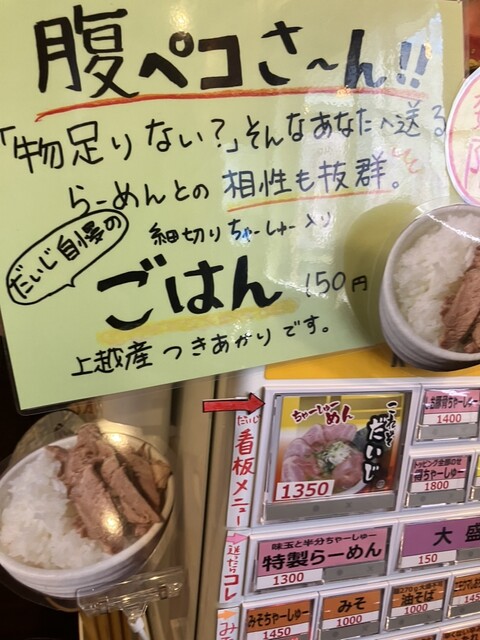 腹ペコさ〜ん!!
「物足りない?」そんなあなたへ送る
らーめんとの相性も抜群。
だいじ自慢の
細切りちゃーしゅー入り
ごはん 150円
上越産つきあかりです。
だいじ
看板メニュー
ちゃーしゅーめん
これぞだいじ。
1350
1400
トッピング全部のせ
1800
迷ったらコレ
味玉と半分ちゃーしゅー
特製らーめん
1300
大盛
150
みそちゃーしゅー
1450
みそ
1000
油そば
1000